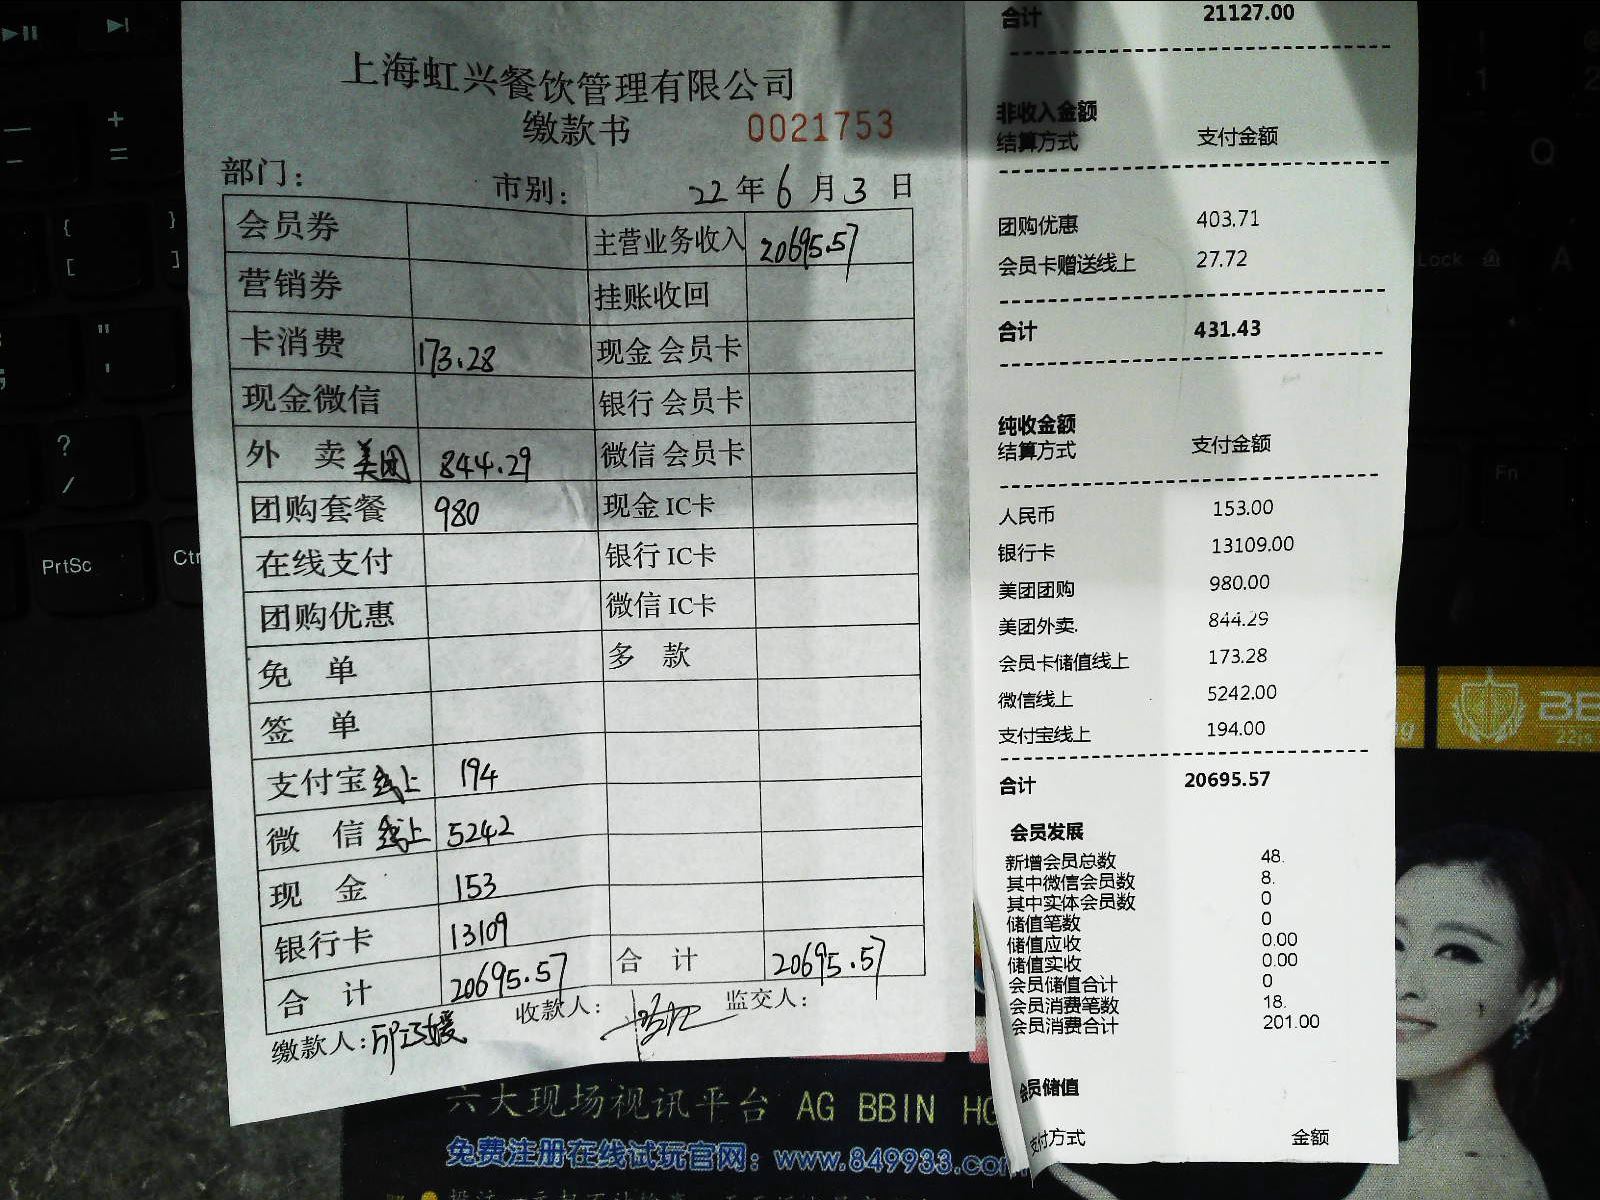 上海虹兴餐饮管理有限公司
缴款书 0021753
部门： 市别： 22年6月3日
会员券 主营业务收入 20695.57
营销券 挂账收回
卡消费 173.28 现金会员卡
现金微信 银行会员卡
外 卖 美团 844.29 微信会员卡
团购套餐 980 现金IC卡
在线支付 银行IC卡
团购优惠 微信IC卡
免 单 多 款
签 单
支付宝线上 194
微 信线上 5242
现 金 153
银行卡 13109
合 计 20695.57 合 计 20695.57
缴款人： 收款人： 监交人：
合计 21127.00
非收入金额
结算方式 支付金额
团购优惠 403.71
会员卡赠送线上 27.72
合计 431.43
纯收金额
结算方式 支付金额
人民币 153.00
银行卡 13109.00
美团团购 980.00
美团外卖. 844.29
会员卡储值线上 173.28
微信线上 5242.00
支付宝线上 194.00
合计 20695.57
会员发展
新增会员总数 48.
其中微信会员数 8.
其中实体会员数 0
储值笔数 0
储值应收 0.00
储值实收 0.00
会员储值合计 0
会员消费笔数 18.
会员消费合计 201.00
会员储值
支付方式 金额
六大现场视讯平台 AG BBIN HG
免费注册在线试玩官网：www.849933.com
PrtSc
Ctr
Lock
A
Q
Fn